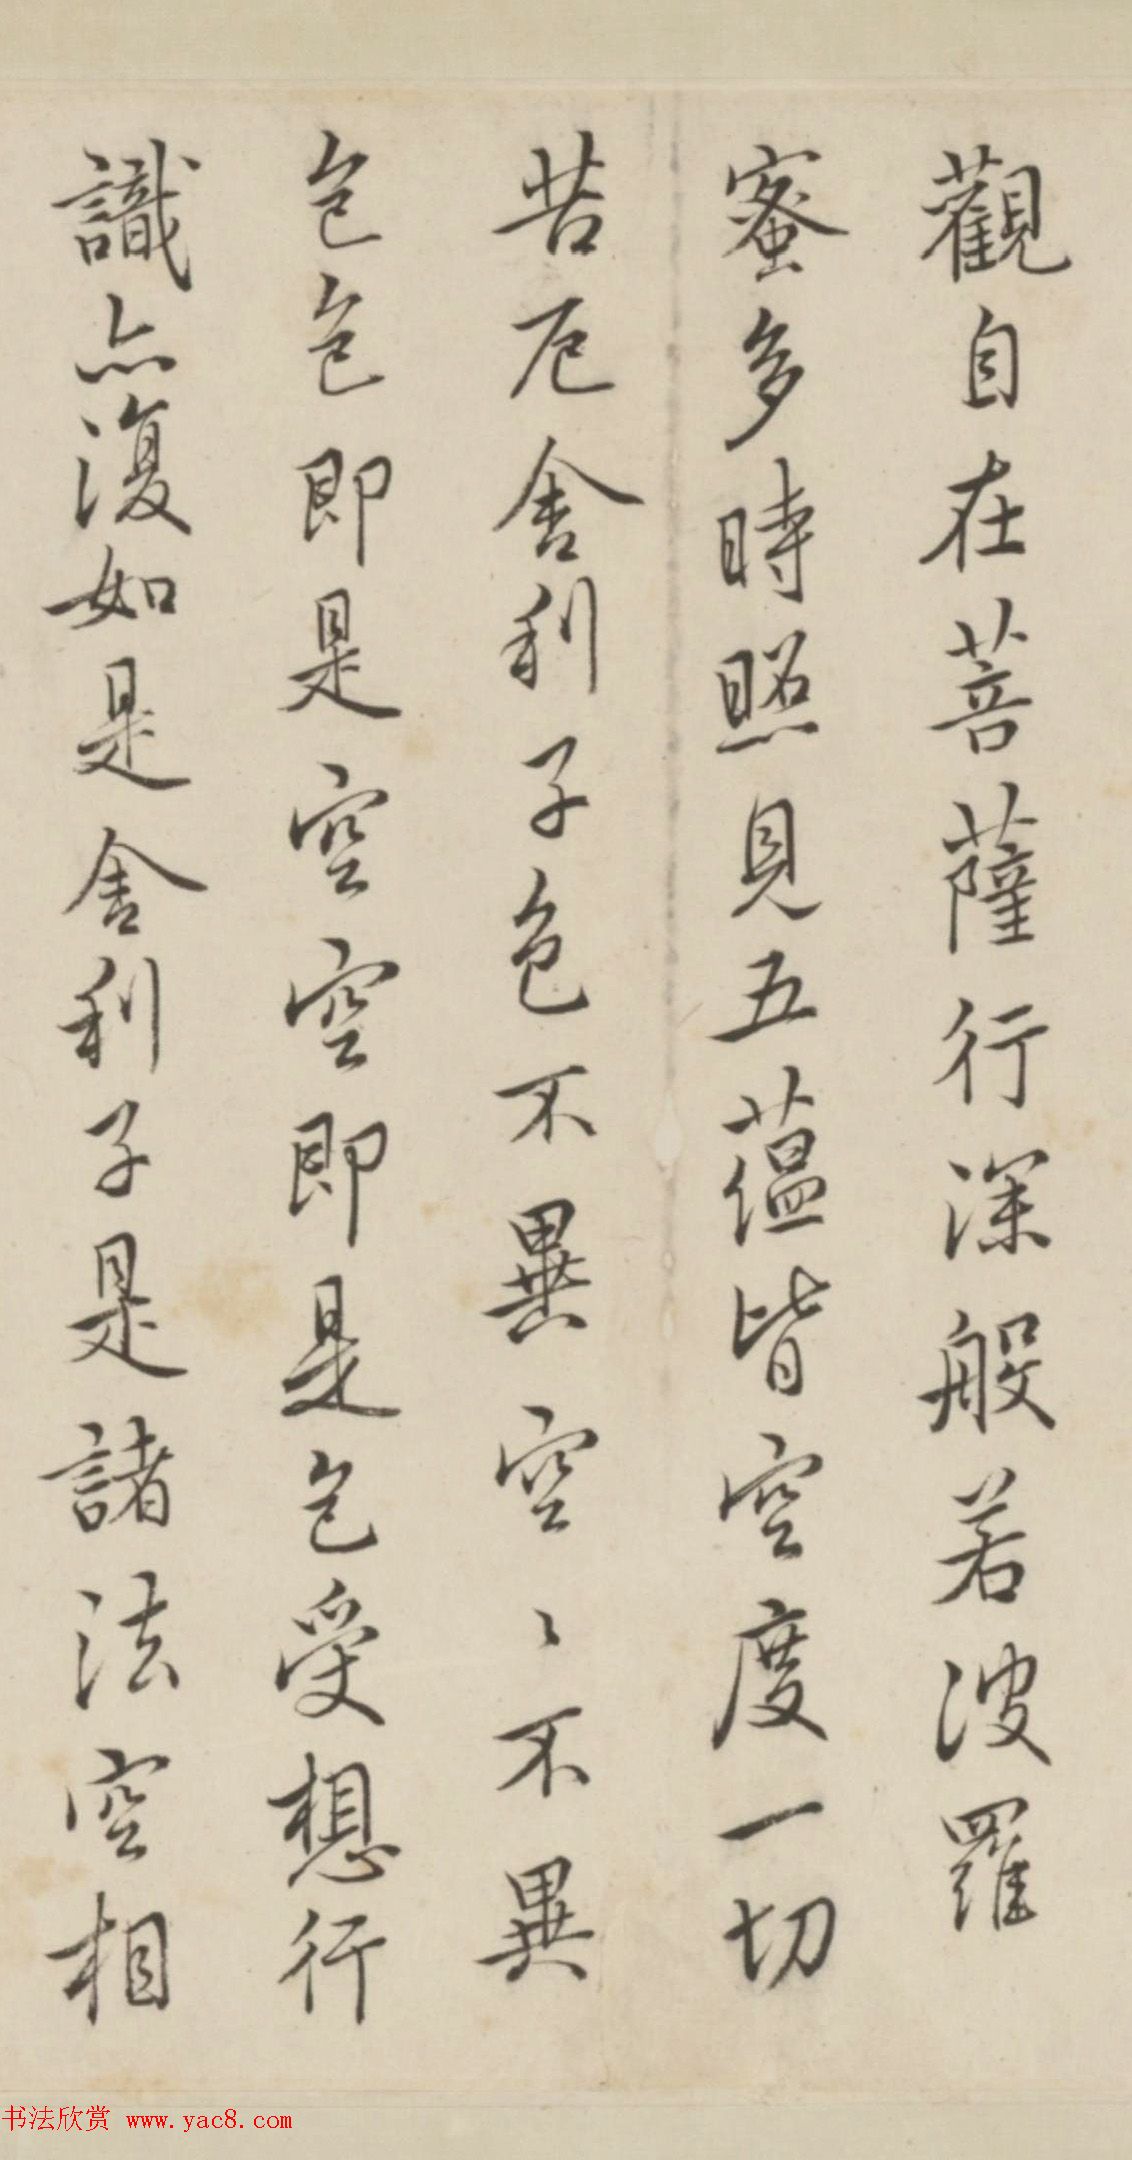 觀自在菩薩行深般若波羅
蜜多時照見五蘊皆空度一切
苦厄舍利子色不異空〻不異
色色即是空空即是色受想行
識亦復如是舍利子是諸法空相
书法欣赏 www.yac8.com